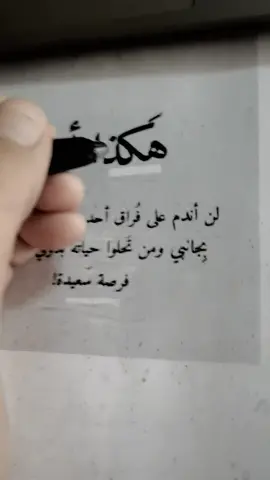 هَكذ أ
لن أندم على فُراق أحد
بِجانبي ومن تَحلوا حياته
فرصة سَعيدة!